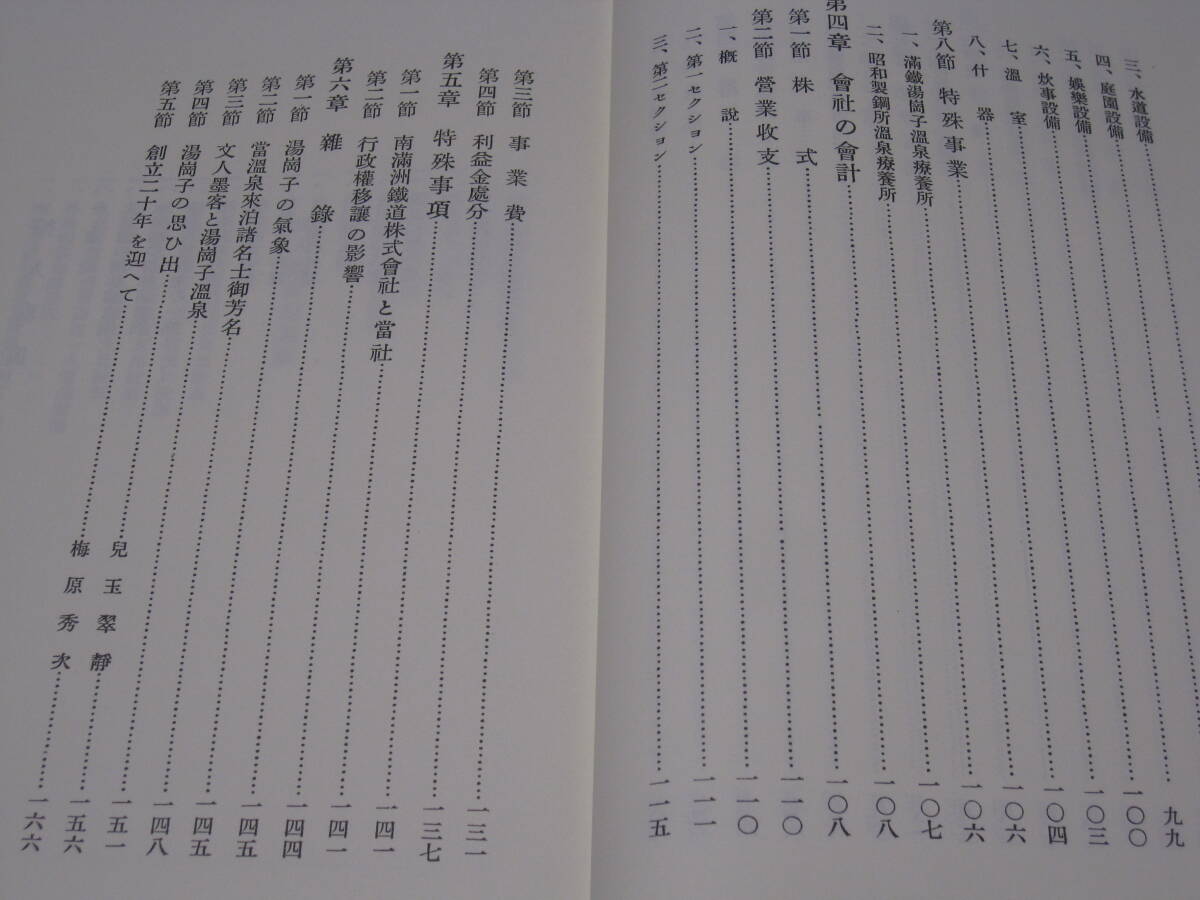 三、水道設備
四、庭園設備
五、娛樂設備……九九
六、炊事設備……一〇〇
七、溫室……一〇三
八、什器……一〇四
第八節 特殊事業……一〇六
一、滿鐵湯崗子溫泉療養所……一〇六
二、昭和製鋼所溫泉療養所……一〇七
第四章 會社の會計……一〇八
第一節 株式……一〇八
第二節 營業收支……一一〇
一、概說……一一〇
二、第一セクション……一一一
三、第二セクション……一一五
第三節 事業費……一三一
第四節 利益金處分……一三七
第五章 特殊事項……一四一
第一節 南滿洲鐵道株式會社と當社……一四一
第二節 行政權移讓の影響……一四四
第六章 雜錄……一四五
第一節 湯崗子の氣象……一四五
第二節 當溫泉來泊諸名士御芳名……一四八
第三節 文人墨客と湯崗子溫泉……一五一
第四節 湯崗子の思ひ出……兒玉翠靜……一五六
第五節 創立二十年を迎へて……梅原秀次……一六六